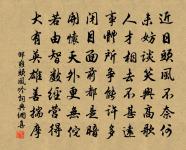 近日頭風不奈何
未妨談笑與高歌
人才相去不甚遠
事體所爭能許多
閉目面前都是暗
開懷天外更無他
若由智數經營得
大有英雄善揣摩
邵雍頭風吟詞典網書